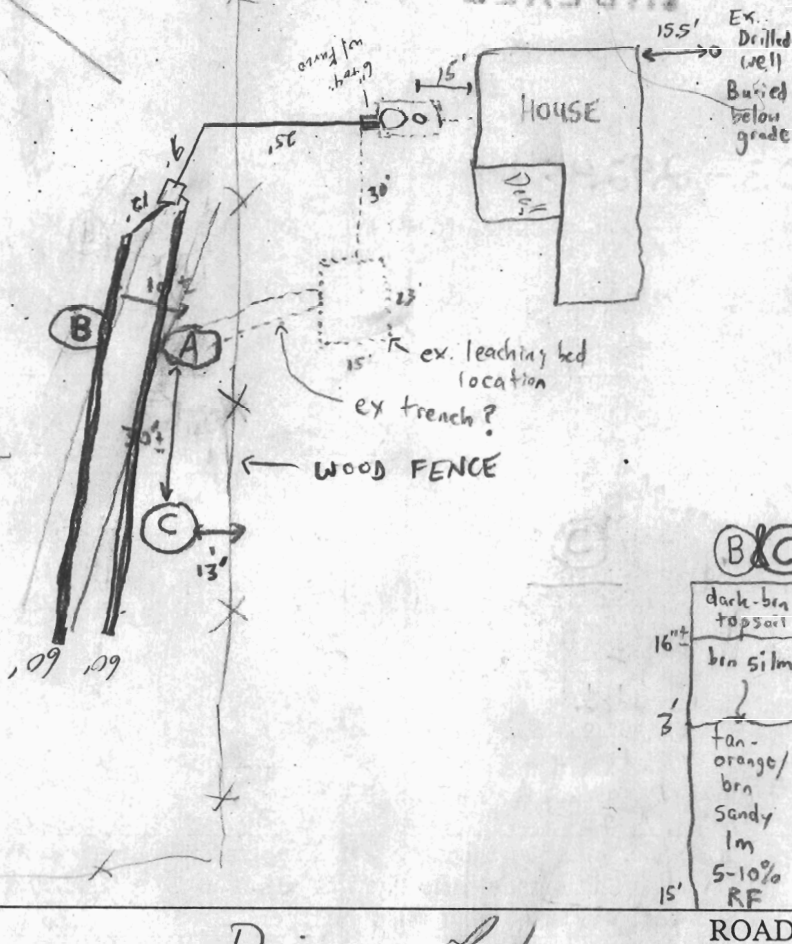 15.5'
Ex.
Drilled
well
Buried
below
grade
15'
HOUSE
Deck
w/ Fernco
25'
9'
12'
30'
10'±
B
A
23'
15'
ex. leaching bed
location
ex trench?
30'±
WOOD FENCE
C
13'
60'
60'
B & C
dark-brn
topsoil
16"±
brn silm
3'
tan-
orange/
brn
sandy
lm
5-10%
RF
15'
ROAD